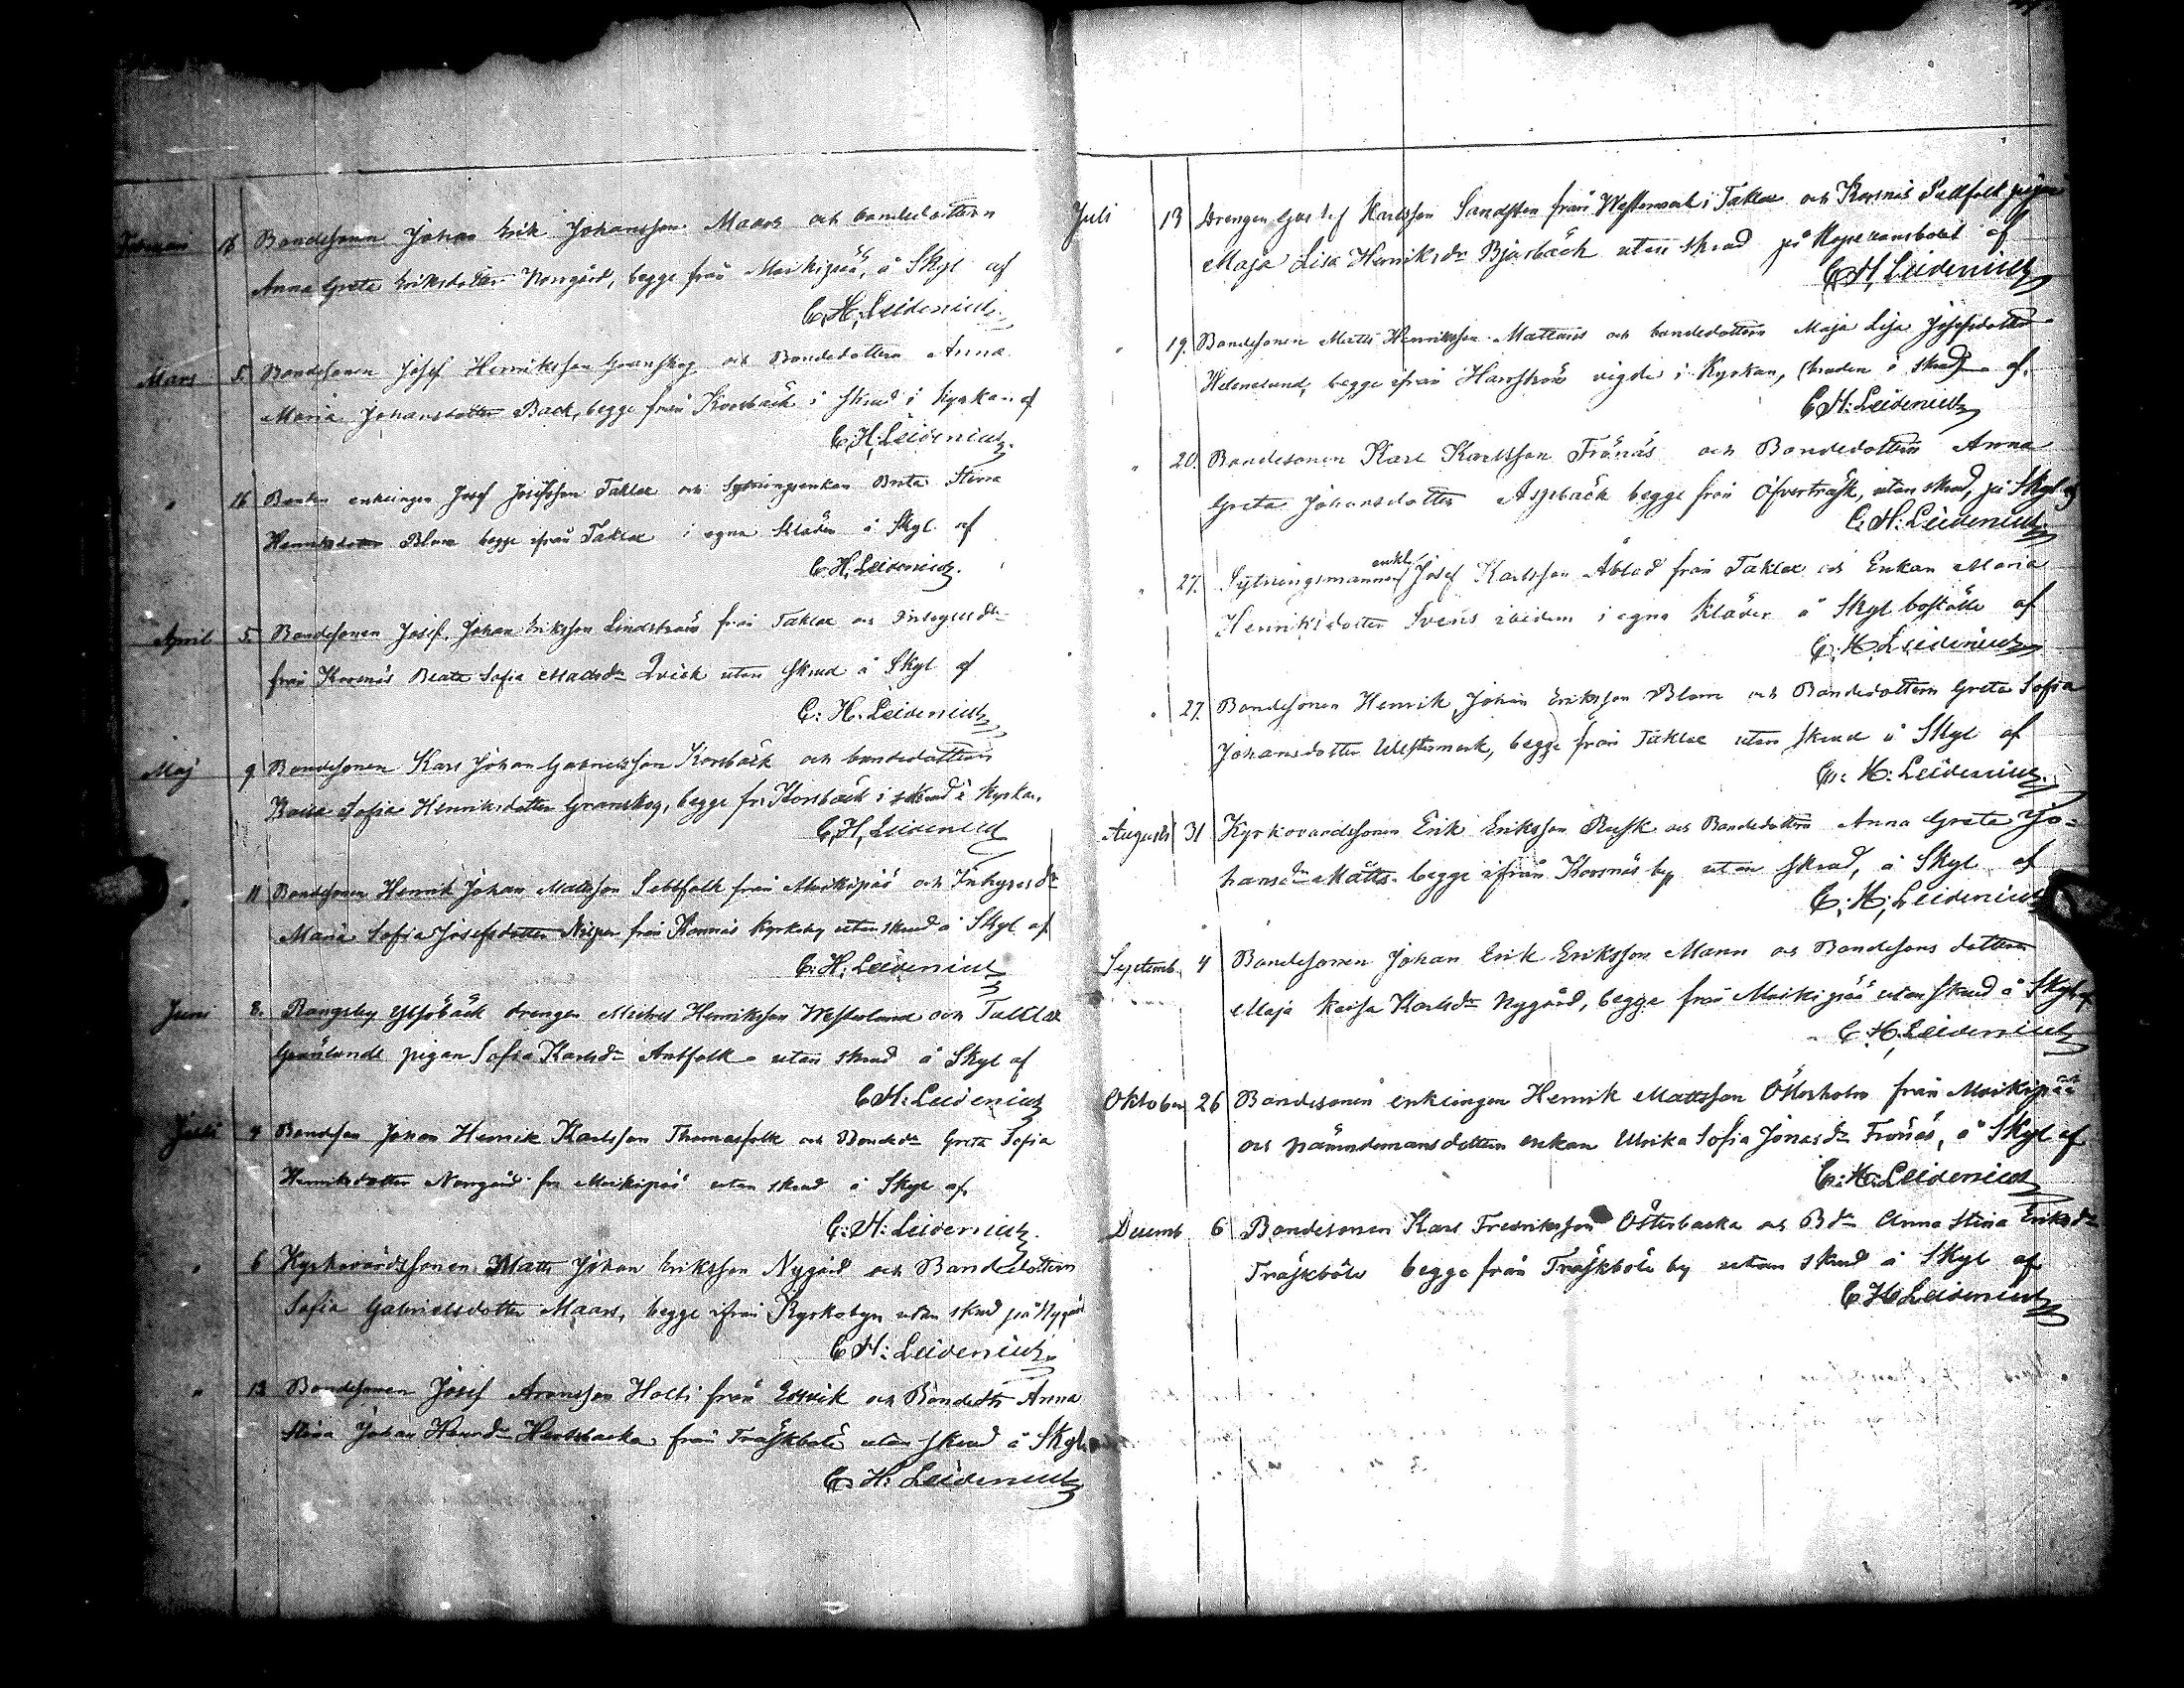 Februari 18 Bondesonen Johan Erik Johansson Maars och bondedottern
Anna Greta Eriksdotter Norrgård, begge från Moikipää, å Skyt af
C. H. Leidenius.
Mars 5 Bondesonen Josef Henriksson Granskog och Bondedottern Anna
Maria Johansdotter Back, begge från Korsbäck i skrud i kyrkan af
C. H. Leidenius.
" 16 Bonden enklingen Josef Josefsson Taklax och Sytningsenkan Brita Stina
Henriksdotter Blom begge ifrån Taklax i egna kläder å Skyt af
C. H. Leidenius.
April 5 Bondesonen Josef Johan Eriksson Lindström från Taklax och Inhysesdr
från Korsnäs Beata Sofia Madsdr Qvick utan skrud å Skyt af
C: H: Leidenius
Maj 9 Bondesonen Karl Johan Gabrielsson Korsbäck och bondedottern
Sofia Henriksdotter Granskog, begge fr Korsbäck i skrud i kyrkan.
C. H. Leidenius
" 11 Bondesonen Henrik Johan Mattsson Sebbfolk från Moikipää och Inhysesdr
Maria Sofia Josefsdotter från Korsnäs kyrkoby utan skrud å Skyt af
C: H: Leidenius
Juni 8. Rangsby drengen Michel Henriksson Westerlund och Taklax
pigan Sofia Karlsdr Antfolk utan skrud å Skyt af
C H: Leidenius
Juli 4 Bondeson Johan Henrik Karlsson Thomasfolk och Bondedr Greta Sofia
Henriksdotter Norrgård fr Moikipää utan skrud å Skyt af
C: H: Leidenius.
" 6 Kyrkovärdssonen Matts Johan Eriksson Nygård och Bondedottern
Sofia Gabrielsdotter Maars, begge ifrån Kyrkobyn utan skrud på Nygård
C H: Leidenius
" 13 Bondesonen Josef Aronsson Holti från Edsvik och Bondedtr Anna
Stina Johan Henrdr från Träskböle utan skrud å Skyt
C. H: Leidenius
Juli 13 Drengen Gustaf Karlsson Sandsten från Westermark i Taklax och Korsnäs pigan
Maja Lisa Henriksdr Bjursbäck utan skrud på af
C. H, Leidenius
" 19. Bondesonen Matts Henriksson Mattans och bondedottern Maja Lisa Josefsdotter
Helenelund, begge ifrån Harrström vigde i Kyrkan, bruden i skrud af.
C H: Leidenius
" 20. Bondesonen Karl Karlsson Frönäs och Bondedottern Anna
Greta Johansdotter Aspbäck begge från Öfverträsk, utan skrud, på Skyt af
C. H: Leidenius.
" 27. Sytningsmannen enkl. Josef Karlsson Åblad från Taklax och Enkan Maria
Henriksdotter Svens ibidem i egna kläder å Skyt boställe af
C. H. Leidenius
" 27. Bondesonen Henrik Johan Eriksson Blom och Bondedottern Greta Sofia
Johansdotter Westermark, begge från Taklax utan skrud å Skyt af
C: H: Leidenius.
Augusti 31 Kyrkovärdssonen Erik Eriksson Rusk och Bondedottern Anna Greta Jo-
hansdr Matts. begge ifrån Korsnäs by utan skrud, å Skyt af
C. H. Leidenius
Septemb. 4 Bondesonen Johan Erik Eriksson Mann och Bondesons dottern
Maja Kaisa Karlsdr Nygård, begge från Moikipää utan skrud å Skyt af
C H. Leidenius
Oktober 26 Bondesonen enklingen Henrik Mattsson Österholm från Moikipää
och nämndemansdottern enkan Ulrika Sofia Jonasdr Frönäs, å Skyt af
C: H: Leidenius
Decemb 6 Bondesonen Karl Fredriksson Österbacka och Bdr Anna Stina Eriksdr
Träskböle begge från Träskböle by utan skrud å Skyt af
C H Leidenius